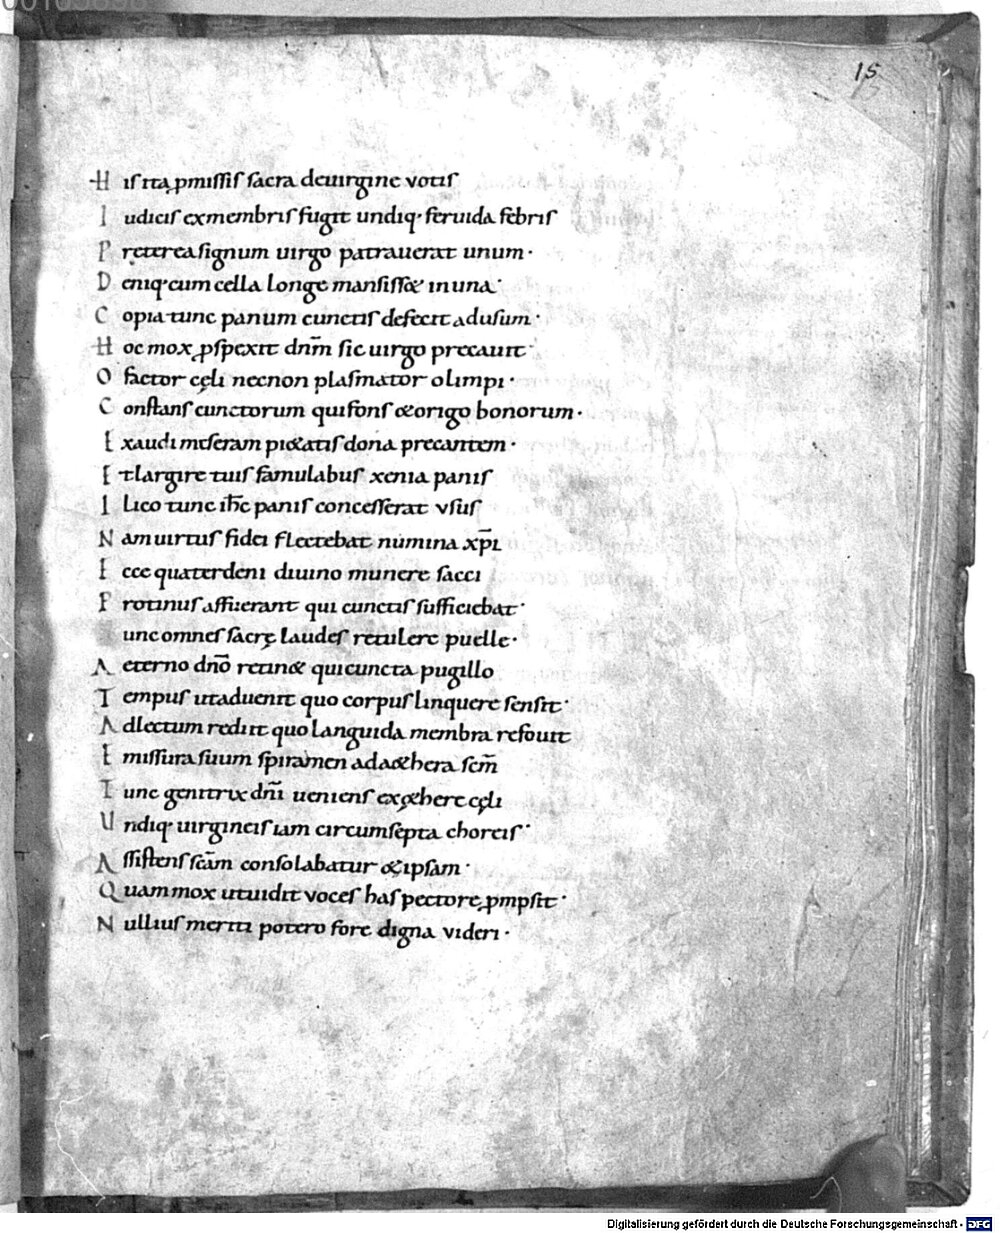 00103890
15
H is ita ꝓmissis sacra deuirgine votis
I udicis exmembris fugit undiq· feruida febris
P reterea signum uirgo patrauerat unum·
D eniq· cum cella longe mansiss& in una·
C opia tunc panum cunctis defecit adusum·
H oc mox ꝓspexit dnm̄ sic uirgo precauit·
O factor cęli necnon plasmator olimpi·
C onstans cunctorum qui fons & origo bonorum·
E xaudi miseram pi&atis dona precantem·
E t largire tuis famulabus xenia panis
I lico tunc ih̅c panis concesserat vsus
N am uirtus fidei flectebat numina xp̅i
E cce quaterdeni diuino munere sacci
P rotinus affuerant qui cunctis sufficiebat·
unc omnes sacrę laudes retulere puelle·
A eterno dn̅o retin& qui cuncta pugillo
T empus ut aduenit quo corpus linquere sensit·
A dlectum rediit quo languida membra refouit
E missura suum spiramen ad a&hera sem̅
T unc genitrix dn̅i ueniens ex ę&here cęli
U ndiq· uirgineis iam circumsepta choreis·
A ssistens sc̅am consolabatur & ipsam·
Q uam mox ut uidit voces has pectore ꝓmpsit·
N ullius meriti potero fore digna videri·
Digitalisierung gefördert durch die Deutsche Forschungsgemeinschaft - DFG